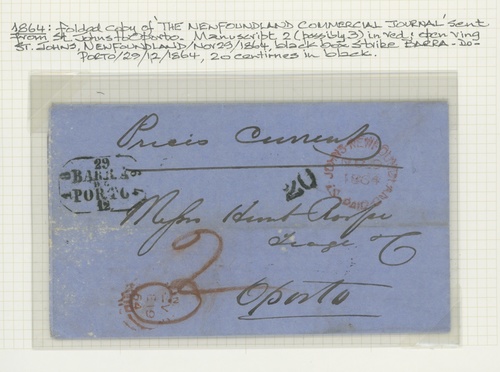 1864: Folded copy of 'THE NEWFOUNDLAND COMMERCIAL JOURNAL' sent
from St Johns to Oporto. Manuscript 2 (possibly 3) in red: open ring
ST. JOHNS, NEWFOUNDLAND/Nov 29/1864, black box strike BARRA-DO-
PORTO/29/12/1864, 20 centimes in black.
Prices Current
29
BARRA
DO
PORTO
12
18
64
ST JOHNS NEWFOUNDLAND
20
Messrs Hunt Roope
Teage & C
2
Oporto